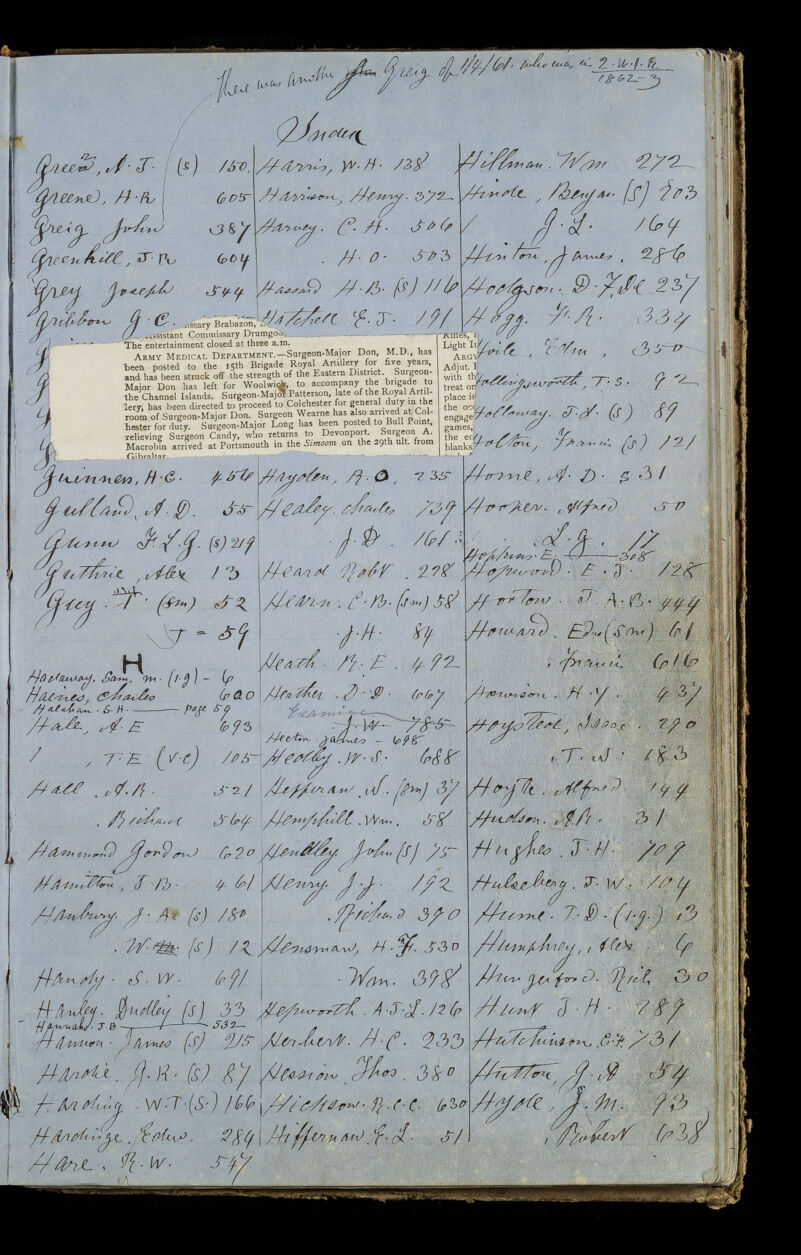 There was another Greig of 1/4/61. who was in 2. W.I.R
1862-3
Index
Green, A. J. (s) 150.
Greene, H. R 605
Greig John 387
Greenhill, J. R 604
Grey Joseph 544
Gribbon G. C.
Guinness, H. C. 456
Gulland, A. D. 55
Gunn F. L. G. (s) 219
Guthrie, Alex 13
Guy. T. (sm) 52
T = 59
H
Hadaway. Saml. m. (i.g) - 6
Haines, Charles 600
Halahan. S. H. page 59
Hale, A. E 693
, T. E (V.C) 105
Hall. A. R. 521
. Richard 564
Hammond Gordon 620
Hamilton, J. B. 461
Hanbury. J. A. (s) 180
. W. (s) 12
Handy. S. W. 691
Hanley. Dudley (s) 33
Hannah. J. B 532
Hannon. James (s) 215
Hardie. G. K. (s) 87
Harding. W. T. (S.) 166
Hardinge. Edwd. 284
Hare. R. W. 547
Harris, W. H. 138
Harrison, Henry. 372
Harvey. C. H. 506
. H. O. 503
Hassard H. B. (s) 116
Hatchell E. J. 191
issary Brabazon,
ssistant Commissary Drumgo
The entertainment closed at three a.m.
ARMY MEDICAL DEPARTMENT.—Surgeon-Major Don, M.D., has
been posted to the 15th Brigade Royal Artillery for five years,
and has been struck off the strength of the Eastern District. Surgeon-
Major Don has left for Woolwich, to accompany the brigade to
the Channel Islands. Surgeon-Major Patterson, late of the Royal Artil-
lery, has been directed to proceed to Colchester for general duty in the
room of Surgeon-Major Don. Surgeon Wearne has also arrived at Col-
chester for duty. Surgeon-Major Long has been posted to Bull Point,
relieving Surgeon Candy, who returns to Devonport. Surgeon A.
Macrobin arrived at Portsmouth in the Simoom on the 29th ult. from
Gibraltar.
Light In
ARGY
Adjut. I
with th
treat on
place i
the occ
engage
games,
the en
blanks
Hayden, R. O, 235
Healey. Charles 739
. J. D. 161
Heard Robt. 278
Hearn. C. B. (sm) 58
. J. H. 84
Heath. R. E. 492
Heather. D. D. 667
Examine J. W. 785
Hector James - 698
Hedley. W. S. 688
Heffernan. W. (sm) 37
Hemphill. Wm. 58
Hendley John (s) 75
Henry. J. J. 192
. Richard 390
Hensman, H. F. 530
. Wm. 398
Hepworth. A. J. L. 126
Herbert. H. C. 233
Hession. Thos. 380
Hickson. R. C. C. 630
Hiffernan. E. L. 51
Hillman. Wm 272
Hinde, Benjan. (S) 203
J. L. 164
Hinton, James. 286
Hodgson. D. F. De 237
Hogg. F. R. 334
Hoile, Edm. 350
Hollingsworth, T. S. 92
Holloway. J. A. (s) 89
Holton, Francis (s) 121
Home, A. D. s 31
Hooper. Alfred 50
. L. G. 17
Hopkins. E. 308
Hopwood. E. J. 128
Horton. J. A. B. 444
Howard. Edw (sm) 61
. Francis 616
Howison. H. Y. 437
Hoysted, Isaac. 290
. T. N. 183
Hoyte. Alfred 144
Hudson. A. R. 31
Hughes. J. H. 709
Hulseberg. J. W. 104
Hume. T. D. (i.g.) 13
Humphrey, Alex 6
Hungerford. Rich 30
Hunt J. H. 289
Hutchinson C. F. 731
Hutton, G. A 54
Hyde, J. M. 93
. Robert 638